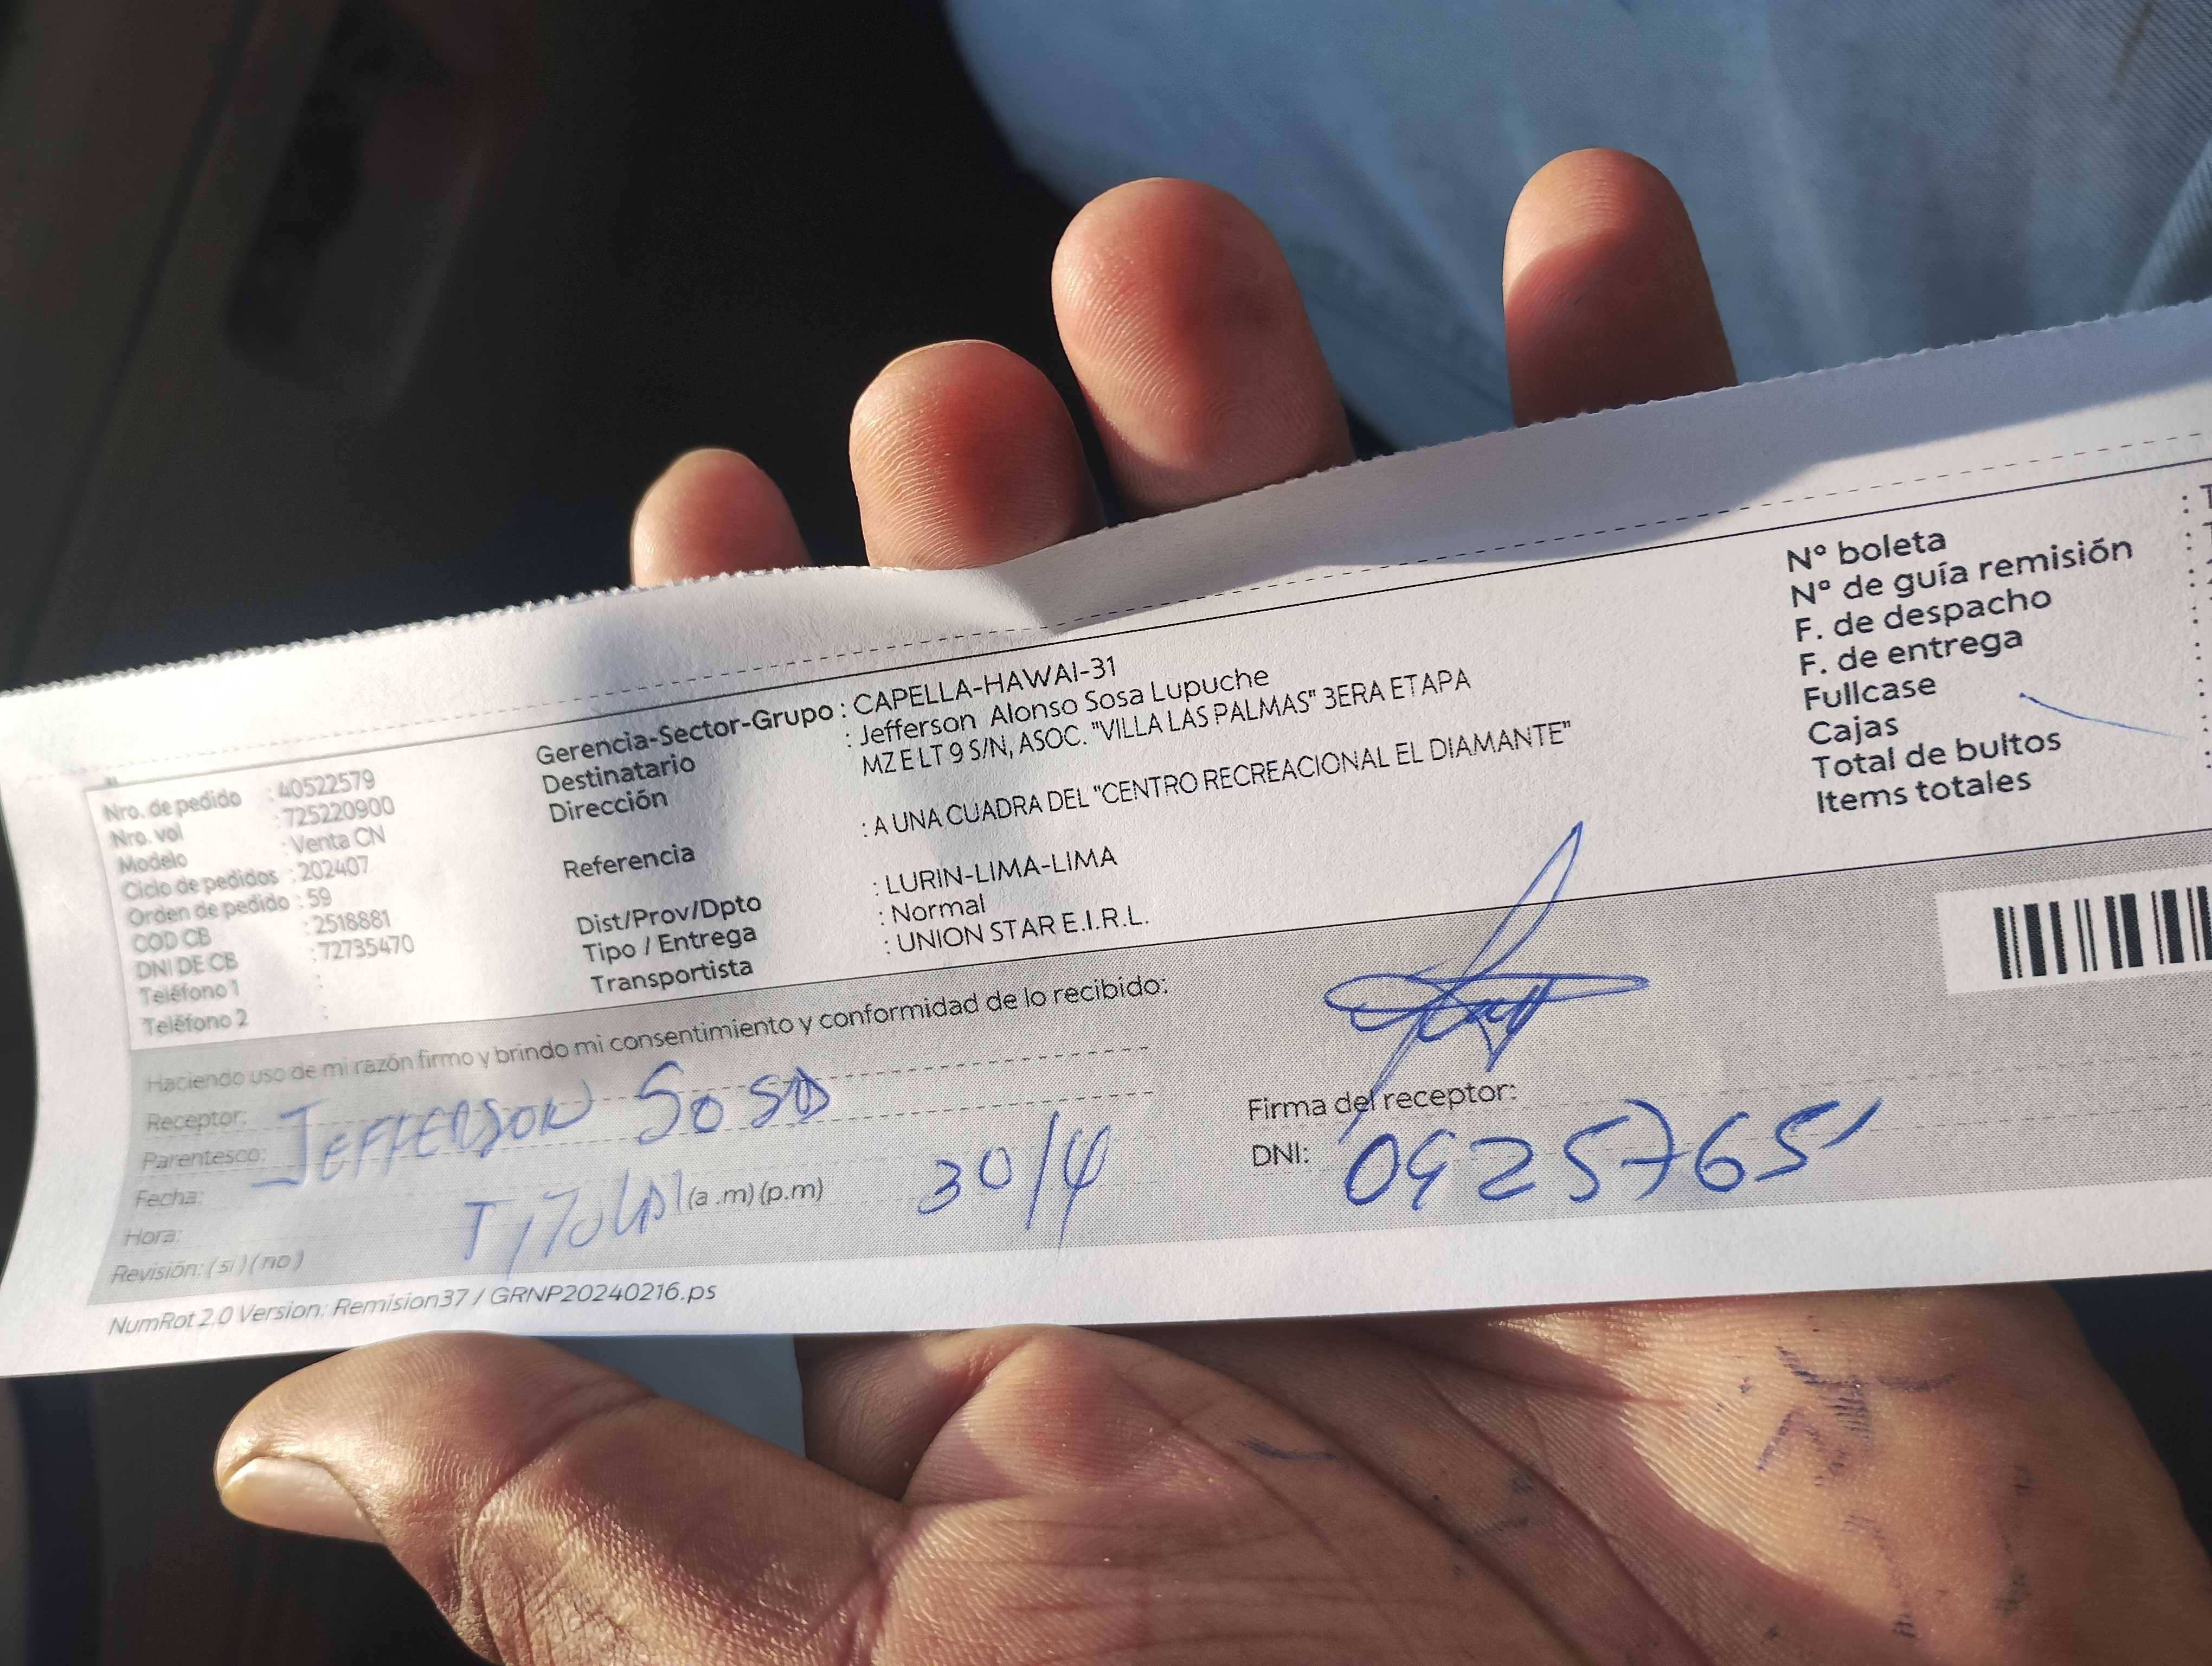 Nro. de pedido : 40522579
Nro. vol : 725220900
Modelo : Venta CN
Ciclo de pedidos : 202407
Orden de pedido : 59
COD CB : 2518881
DNI DE CB : 72735470
Teléfono 1 :
Teléfono 2 :
Gerencia-Sector-Grupo : CAPELLA-HAWAI-31
Destinatario : Jefferson Alonso Sosa Lupuche
Dirección MZ E LT 9 S/N, ASOC. "VILLA LAS PALMAS" 3ERA ETAPA
Referencia : A UNA CUADRA DEL "CENTRO RECREACIONAL EL DIAMANTE"
Dist/Prov/Dpto : LURIN-LIMA-LIMA
Tipo / Entrega : Normal
Transportista : UNION STAR E.I.R.L.
N° boleta :
N° de guía remisión :
F. de despacho :
F. de entrega :
Fullcase :
Cajas :
Total de bultos :
Items totales :
Haciendo uso de mi razón firmo y brindo mi consentimiento y conformidad de lo recibido:
Receptor: JEFFERSON SOSA
Parentesco:
Fecha: TITULAR (a .m) (p.m) 30/4
Hora:
Revisión: ( si ) ( no )
Firma del receptor:
DNI:
NumRot 2.0 Version: Remision37 / GRNP20240216.ps